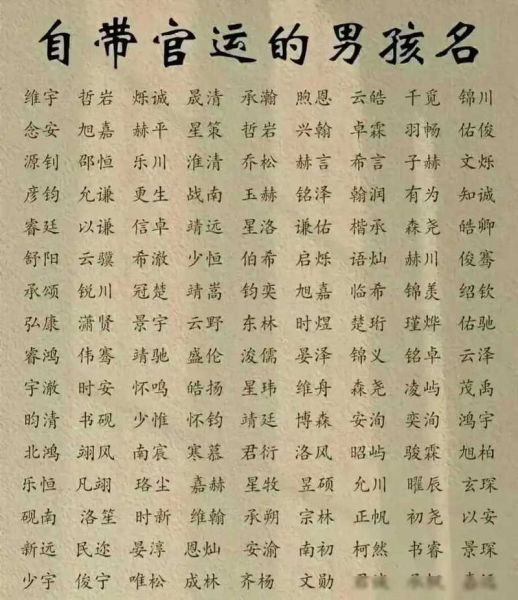 自带官运的男孩名
维宇 哲岩 烁诚 晟清 承瀚 煦恩 云皓 千觅 锦川
念安 旭嘉 赫平 星策 哲岩 兴翰 卓霖 羽畅 佑俊
源钊 邵恒 乐川 淮清 乔松 赫言 希言 子赫 文烁
彦钧 允谦 更生 战南 玉赫 铭泽 翰润 有为 知诚
睿廷 以谦 信卓 靖远 星洛 谦佑 楷承 森尧 皓卿
舒阳 云骥 希澈 少恒 伯希 启烁 语灿 赫川 俊骞
承颂 锐川 冠楚 靖嵩 钧奕 旭嘉 临希 锦羡 绍钦
弘康 潇贤 景宇 云野 东林 时煜 楚珩 瑾烨 佑驰
睿鸿 伟骞 靖驰 盛伦 浚儒 晏泽 锦义 铭卓 云泽
宇澈 时安 怀鸣 皓扬 星玮 维舟 森尧 凌屿 茂禹
昀清 书砚 少惟 怀钧 靖廷 博森 安洵 奕洵 鸿宇
北鸿 翊风 南宸 寒慕 君衍 洛风 昭屿 骏霖 旭柏
乐恒 凡翊 珞尘 嘉赫 星牧 昱硕 允川 曜辰 玄琛
砚南 洛笙 时新 维翰 承朔 宗林 正帆 初尧 以安
新远 民迩 晏淳 恩灿 安渝 南初 柯然 书睿 景琛
少宇 俊宁 唯松 成林 齐杨 文勋